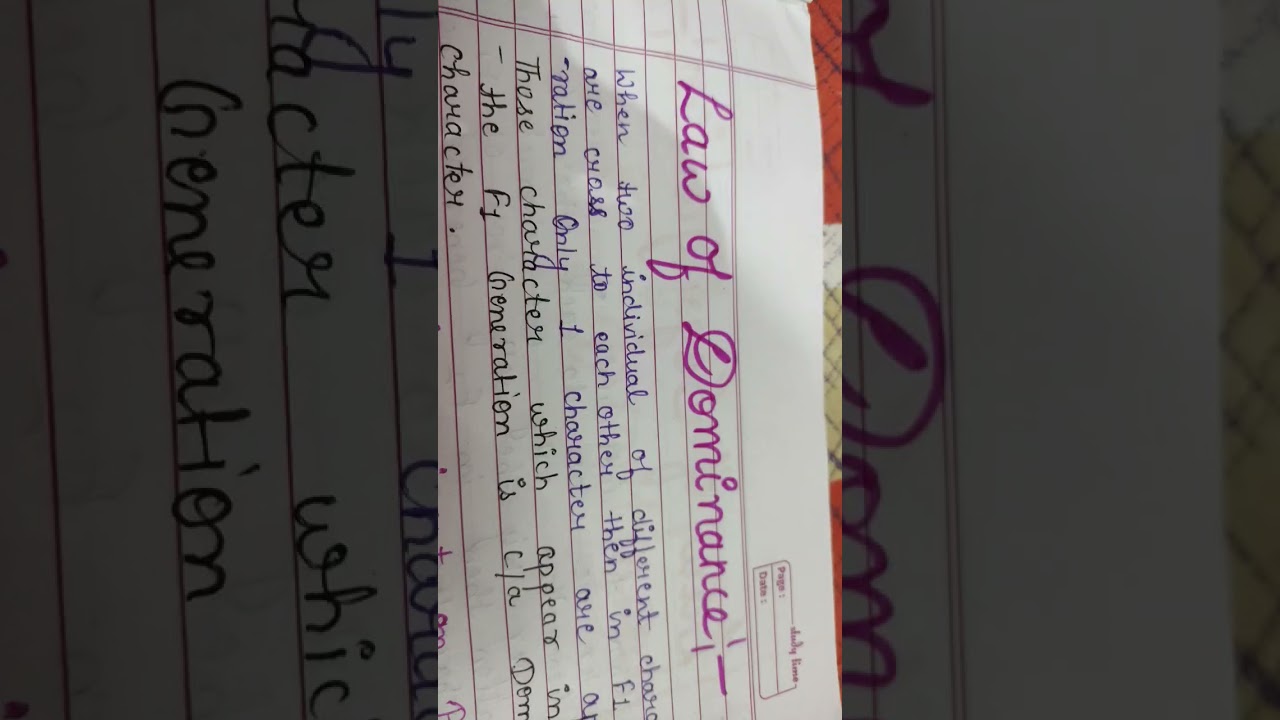 Page:
Date:
study time
Law of Dominance:-
When two individual of different charac
are cross to each other then in F1
-ration Only 1 character are ap
These character which appear in
- the F1 Generation is c/a Dom
character.